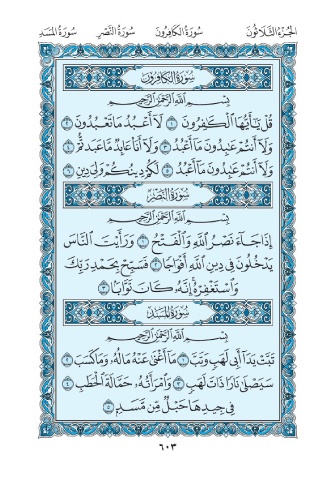 الجزء الثلاثون سورة الكافرون سورة النصر سورة المسد
سورة الكافرون
بسم الله الرحمن الرحيم
قُلْ يَٰٓأَيُّهَا ٱلْكَٰفِرُونَ ١ لَآ أَعْبُدُ مَا تَعْبُدُونَ ٢
وَلَآ أَنتُمْ عَٰبِدُونَ مَآ أَعْبُدُ ٣ وَلَآ أَنَا۠ عَابِدٌ مَّا عَبَدتُّمْ ٤
وَلَآ أَنتُمْ عَٰبِدُونَ مَآ أَعْبُدُ ٥ لَكُمْ دِينُكُمْ وَلِيَ دِينِ ٦
سورة النصر
بسم الله الرحمن الرحيم
إِذَا جَآءَ نَصْرُ ٱللَّهِ وَٱلْفَتْحُ ١ وَرَأَيْتَ ٱلنَّاسَ
يَدْخُلُونَ فِي دِينِ ٱللَّهِ أَفْوَاجًا ٢ فَسَبِّحْ بِحَمْدِ رَبِّكَ
وَٱسْتَغْفِرْهُ إِنَّهُۥ كَانَ تَوَّابًۢا ٣
سورة المسد
بسم الله الرحمن الرحيم
تَبَّتْ يَدَآ أَبِي لَهَبٍ وَتَبَّ ١ مَآ أَغْنَىٰ عَنْهُ مَالُهُۥ وَمَا كَسَبَ ٢
سَيَصْلَىٰ نَارًا ذَاتَ لَهَبٍ ٣ وَٱمْرَأَتُهُۥ حَمَّالَةَ ٱلْحَطَبِ ٤
فِي جِيدِهَا حَبْلٌ مِّن مَّسَدٍۭ ٥
٦٠٣